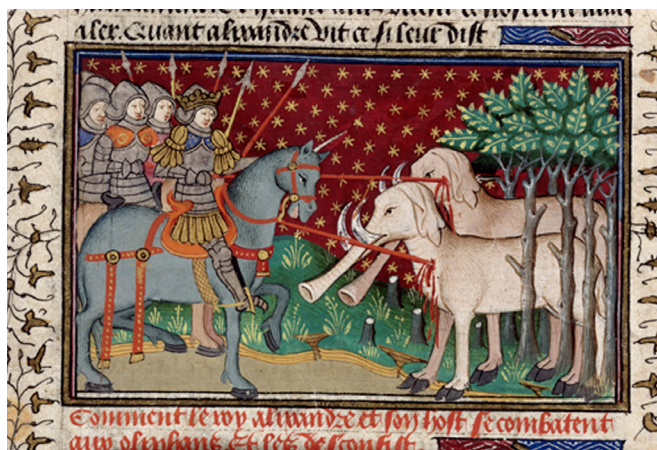 aler. Quant alixandre vit ce si leur dist
Comment le roy alixandre et son host se combatent
aux oliphans et les desconfist